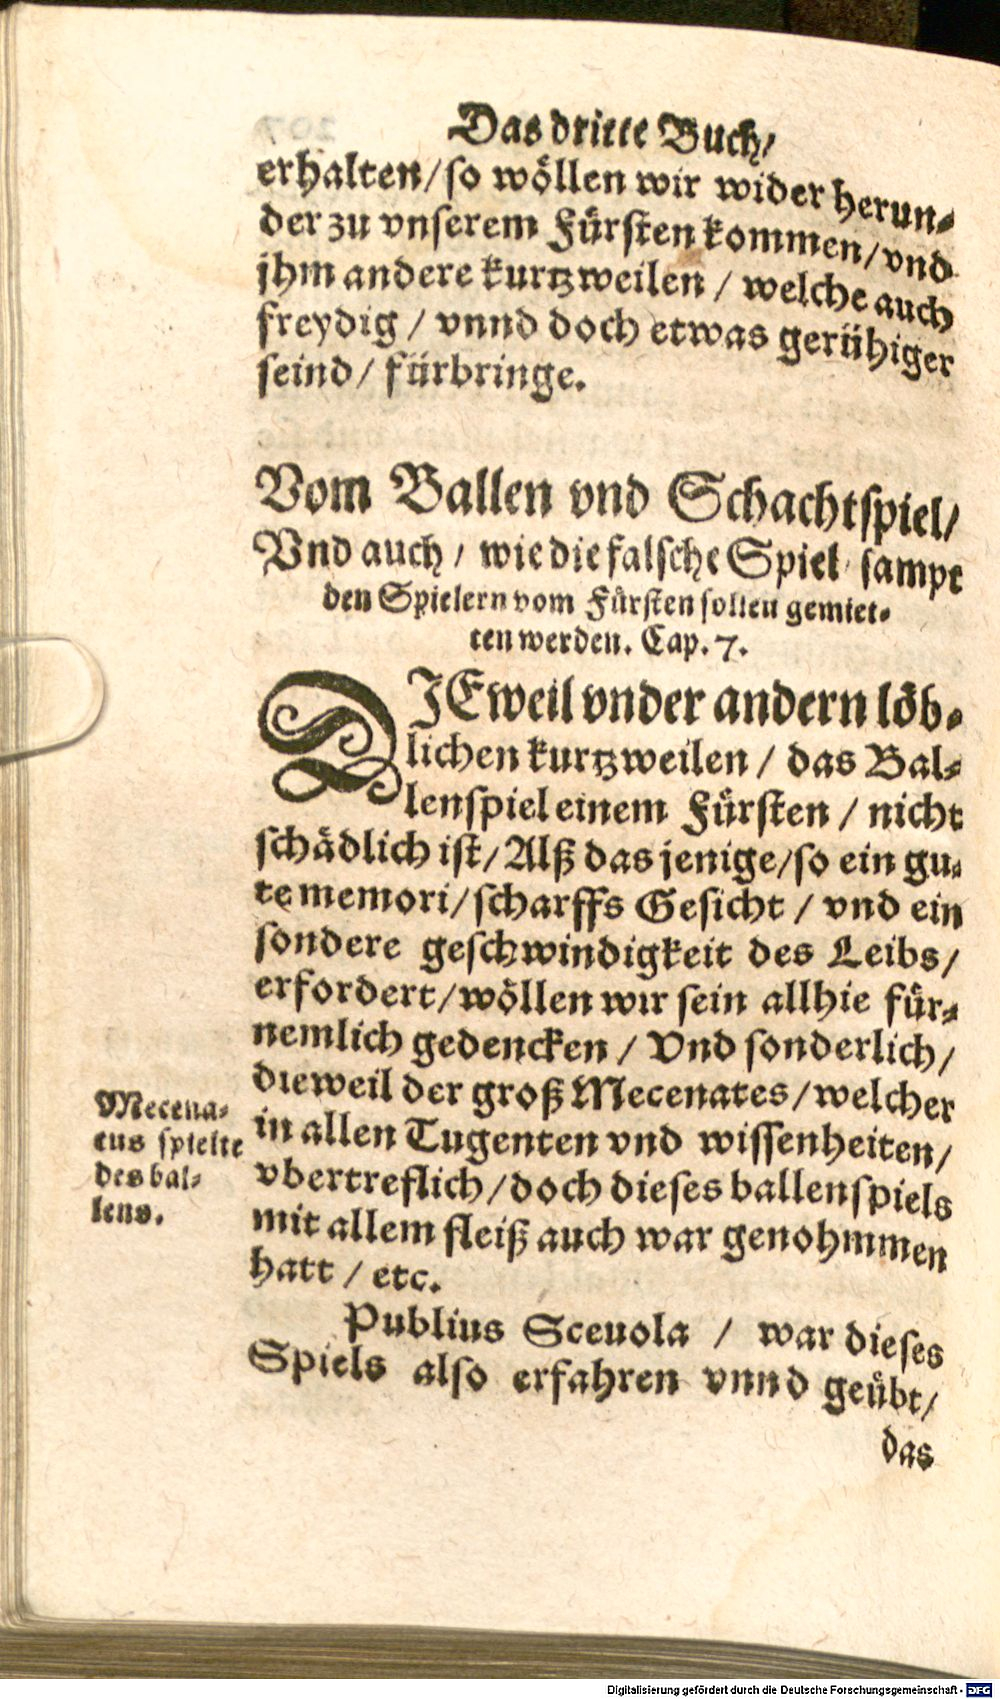 Das dritte Buch/
erhalten/so wöllen wir wider herun-
der zu vnserem Fürsten kommen/vnd
jhm andere kurtzweilen / welche auch
freydig / vnnd doch etwas gerühiger
seind/ fürbringe.
Vom Ballen vnd Schachtspiel/
Vnd auch / wie die falsche Spiel sampt
den Spielern vom Fürsten sollen gemiet-
ten werden. Cap. 7.
DIEweil vnder andern löb-
lichen kurtzweilen / das Bal-
lenspiel einem Fürsten / nicht
schädlich ist/ Alß das jenige/so ein gu-
te memori/scharffs Gesicht / vnd ein
sondere geschwindigkeit des Leibs/
erfordert/wöllen wir sein allhie für-
nemlich gedencken / Vnd sonderlich/
dieweil der groß Mecenates/welcher
in allen Tugenten vnd wissenheiten/
vbertreflich/doch dieses ballenspiels
mit allem fleiß auch war genohmmen
hatt / etc.
Mecena-
tus spielte
des bal-
lens.
Publius Sceuola / war dieses
Spiels also erfahren vnnd geübt/
das
Digitalisierung gefördert durch die Deutsche Forschungsgemeinschaft - DFG